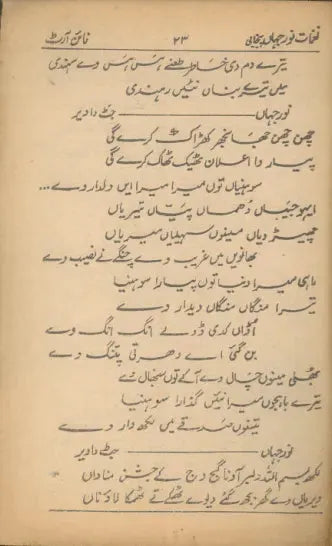 نغمات نور جہاں پنجابی ۲۳ فائن آرٹ
تیرے دم دی خاطر طعنے ہس ہس وے سہندی
میں تیرے بناں نئیں رہندی
نور جہاں ــــــ جٹ دا ویر
چھن چھن جھانجر کھڑاک کرے گی
پیار دا اعلان ٹھیک ٹھاک کرے گی
سوہنیاں توں میرا میں دلدار وے...
ایہو جیہاں دھماں پیاں تیریاں
چھیڑدیاں مینوں سہیلیاں میریاں
بھانویں میں غریب وے چنگے نے نصیب وے
ماہی میرا دنیا توں پیارا سوہنیا
تیرا منگاں منگاں دیدار وے
اڈاں کدی ڈولے انگ انگ وے
بن گئی اے دھرتی پتنگ وے
بھلی مینوں چال وے آ کے توں سنبھال وے
تیرے باہجوں میرا نئیں گذارا سوہنیا
تینوں صدقے میں لکھ وار وے
نور جہاں ــــــ جٹ دا ویر
لکھ بسم اللہ دلبر آونا گج وج کے جشن مناواں
ویریاں دے گھر بجھ گئے دیوے ٹھمکے تے ٹھمکا لاوناں